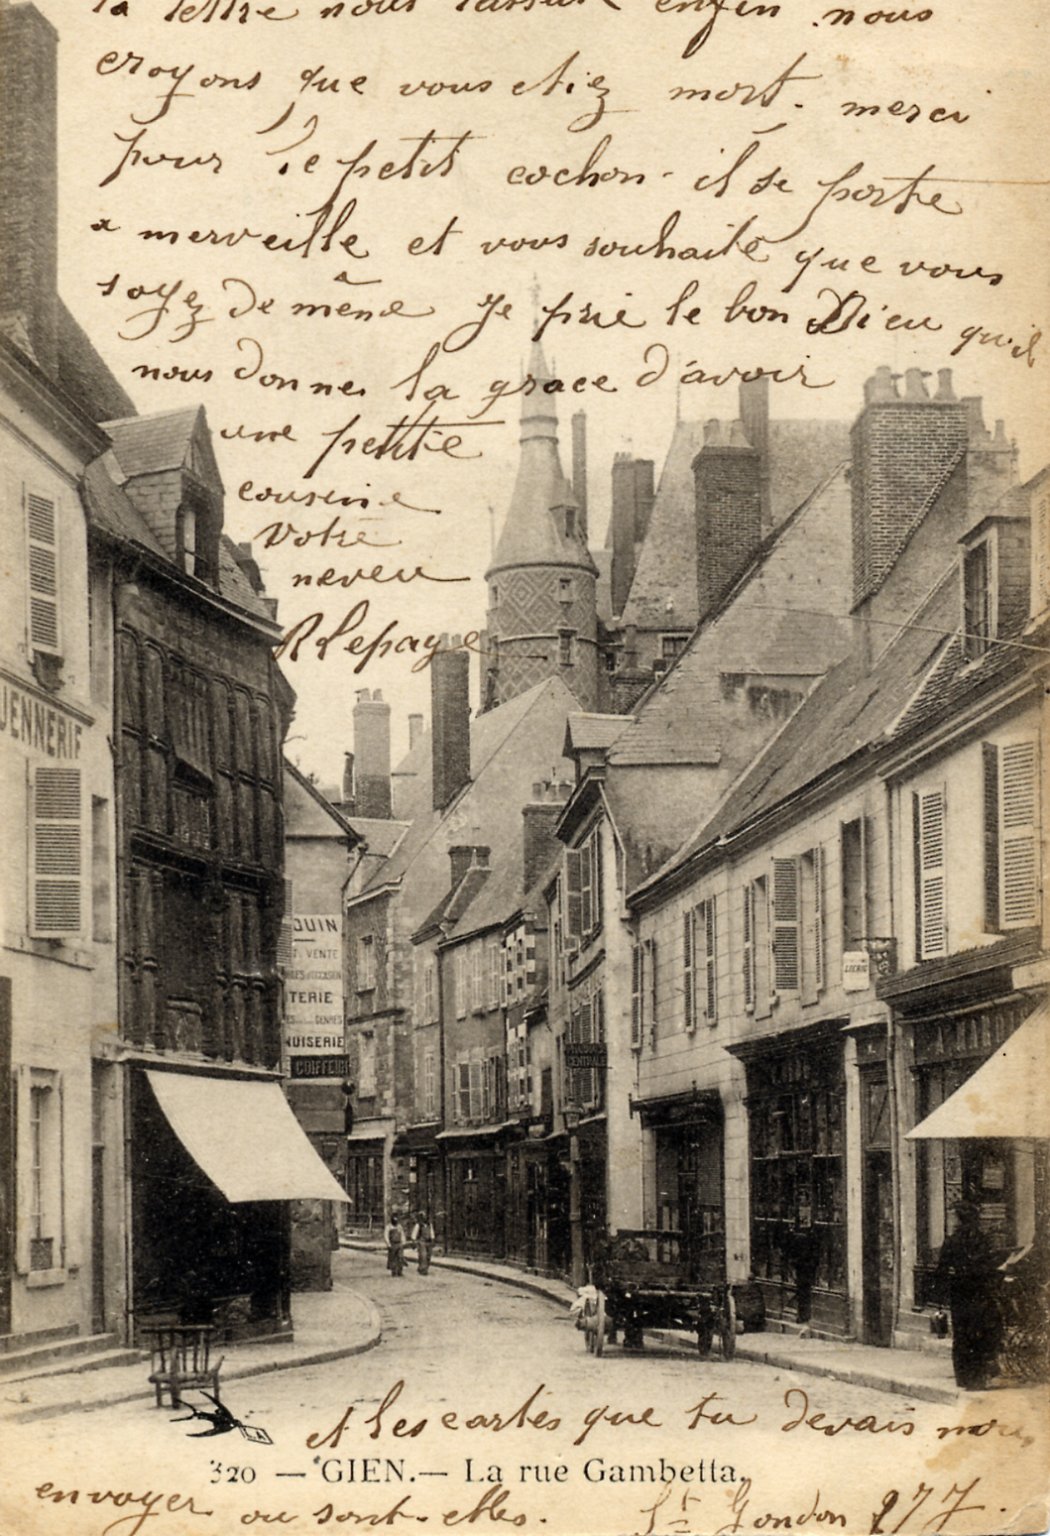 la lettre nous rassure enfin. nous
croyons que vous etiez mort. merci
pour le petit cochon. il se porte
a merveille et vous souhaite que vous
soyez de même Je prie le bon Dieu qu'il
nous donne la grace d'avoir
une petite
cousine
Votre
neveu
R Lepaye
UENNERIE
JUIN
VENTE
TERIE
NUISERIE
COIFFEUR
CENTRAL
et les cartes que tu devais nous
320 — GIEN. — La rue Gambetta.
envoyer ou sont-elles. St Gondon